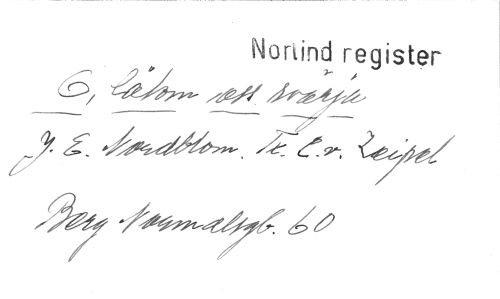 Norlind register
O, låtom oss svärja
J. E. Nordblom. Tx. C. v. Zeipel
Berg Normalsgb. 60